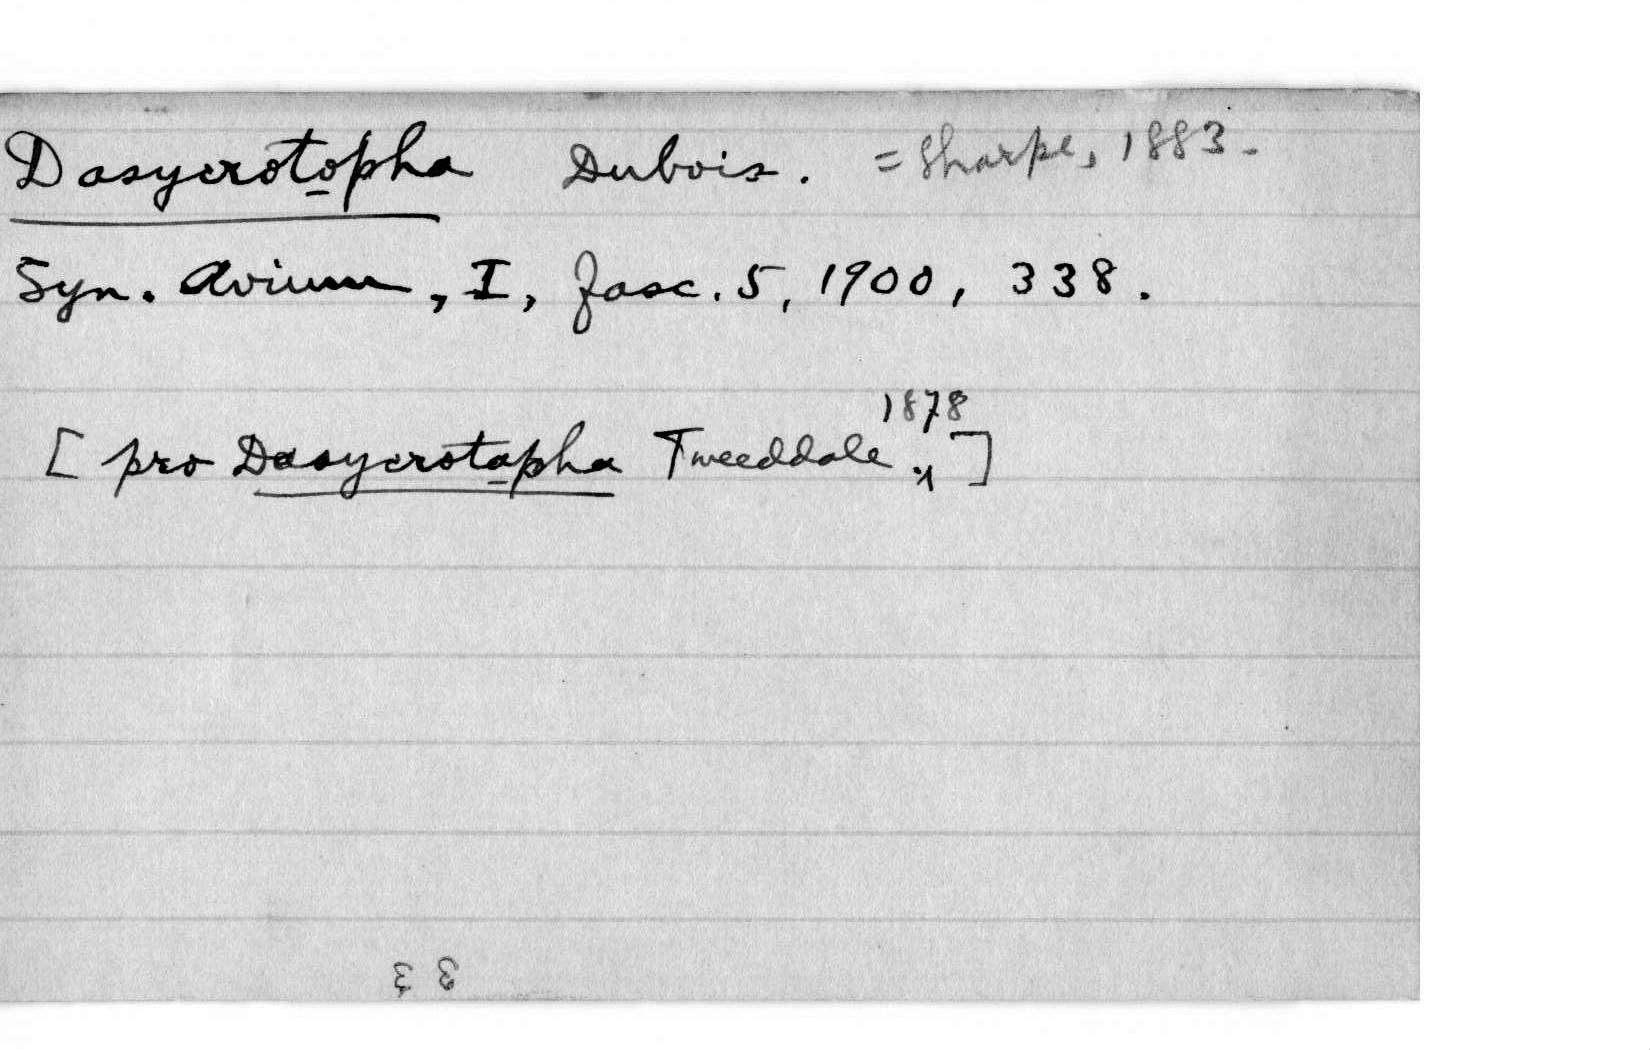 Dasycrotopha Dubois. = Sharpe, 1883.
Syn. Avium, I, fasc. 5, 1900, 338.
1878
[ pro Dasycrotapha Tweeddale ]